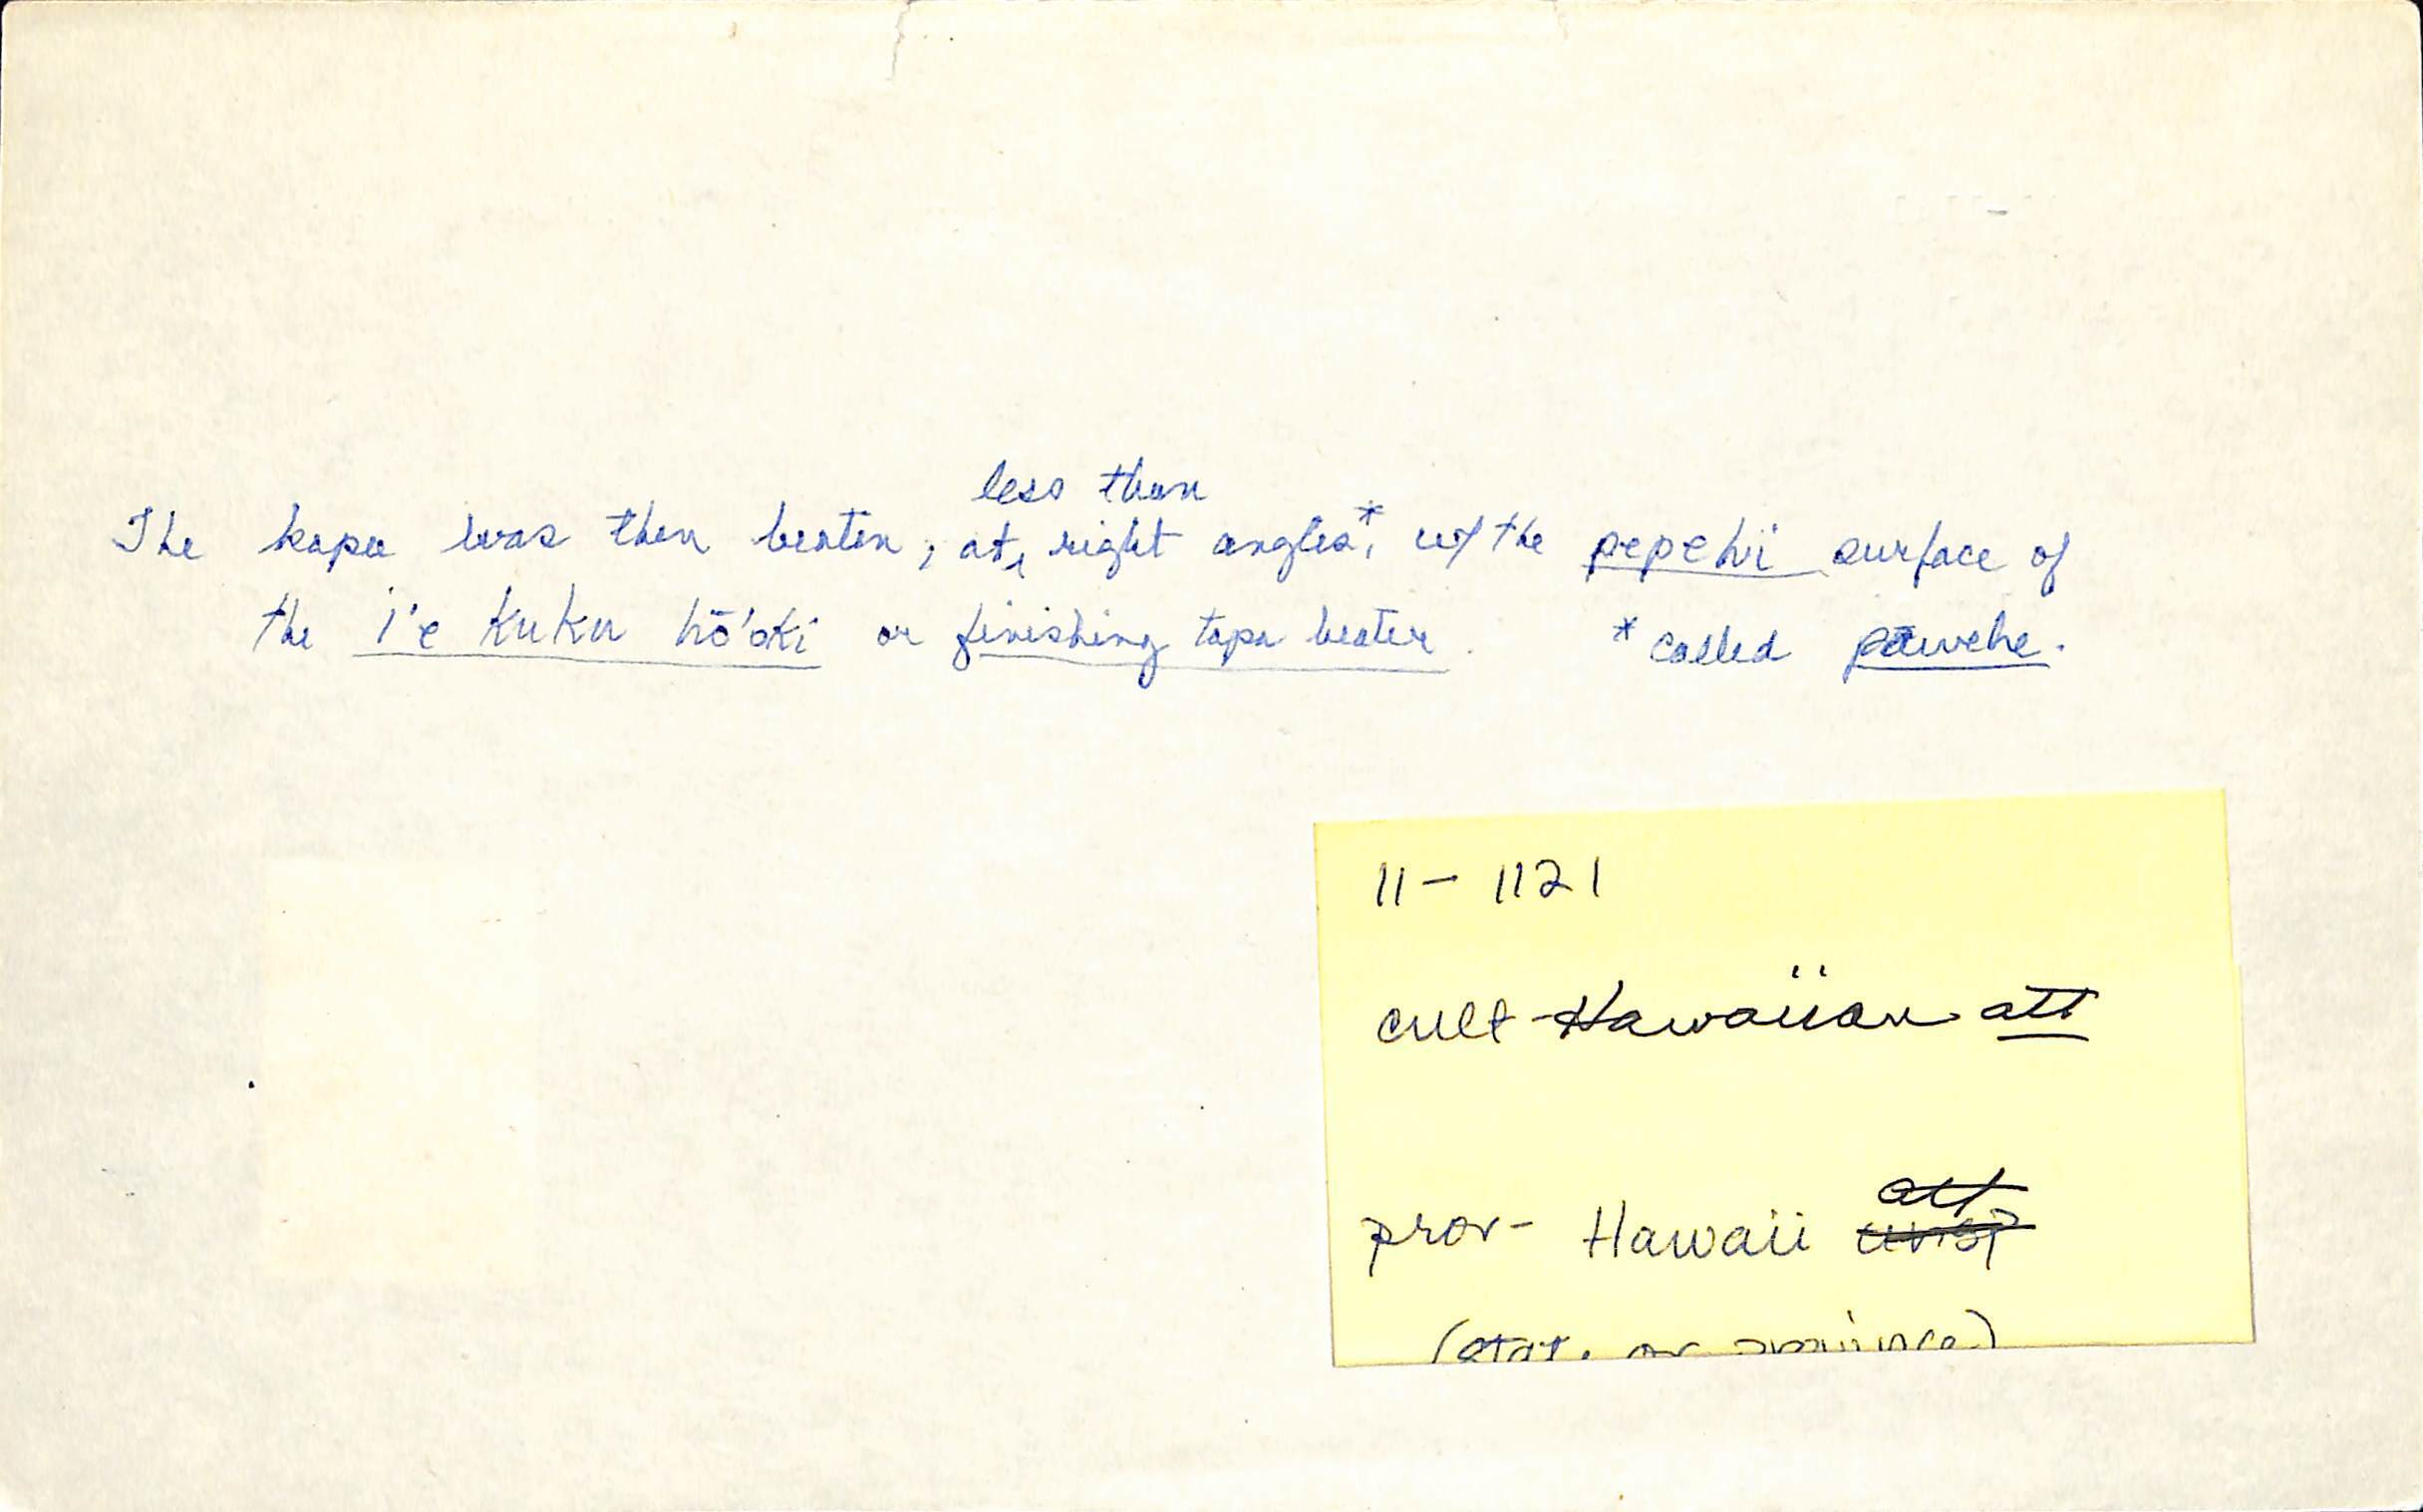 less than
The kapa was then beaten, at right angles*, w/ the pepehi surface of
the i'e kuku hō'oki or finishing tapa beater. *called pāwehe.
11-1121
cult - Hawaiian att
att
prov- Hawaii
(state or province)